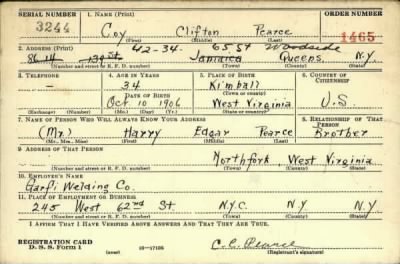 SERIAL NUMBER 1. NAME (Print) ORDER NUMBER
3244 Coy Clifton Pearce 1465
(First) (Middle) (Last)
2. ADDRESS (Print) 42-34- 65 St Woodside
86 14 139 St. Jamaica Queens, N.Y.
(Number and street or R. F. D. number) (Town) (County) (State)
3. TELEPHONE 4. AGE IN YEARS 5. PLACE OF BIRTH 6. COUNTRY OF CITIZENSHIP
- 34 Kimball
DATE OF BIRTH (Town or county)
Oct 10 1906 West Virginia U.S.
(Exchange) (Number) (Mo.) (Day) (Yr.) (State or country)
7. NAME OF PERSON WHO WILL ALWAYS KNOW YOUR ADDRESS 8. RELATIONSHIP OF THAT PERSON
(Mr.) Harry Edgar Pearce Brother
(Mr., Mrs., Miss) (First) (Middle) (Last)
9. ADDRESS OF THAT PERSON
Northfork, West Virginia
(Number and street or R. F. D. number) (Town) (County) (State)
10. EMPLOYER'S NAME
Garfi Welding Co.
11. PLACE OF EMPLOYMENT OR BUSINESS
245 West 62nd St. N.Y.C. N.Y N.Y
(Number and street or R. F. D. number) (Town) (County) (State)
I AFFIRM THAT I HAVE VERIFIED ABOVE ANSWERS AND THAT THEY ARE TRUE.
REGISTRATION CARD
D. S. S. Form 1 16-17105 C. C. Pearce
(Registrant's signature)